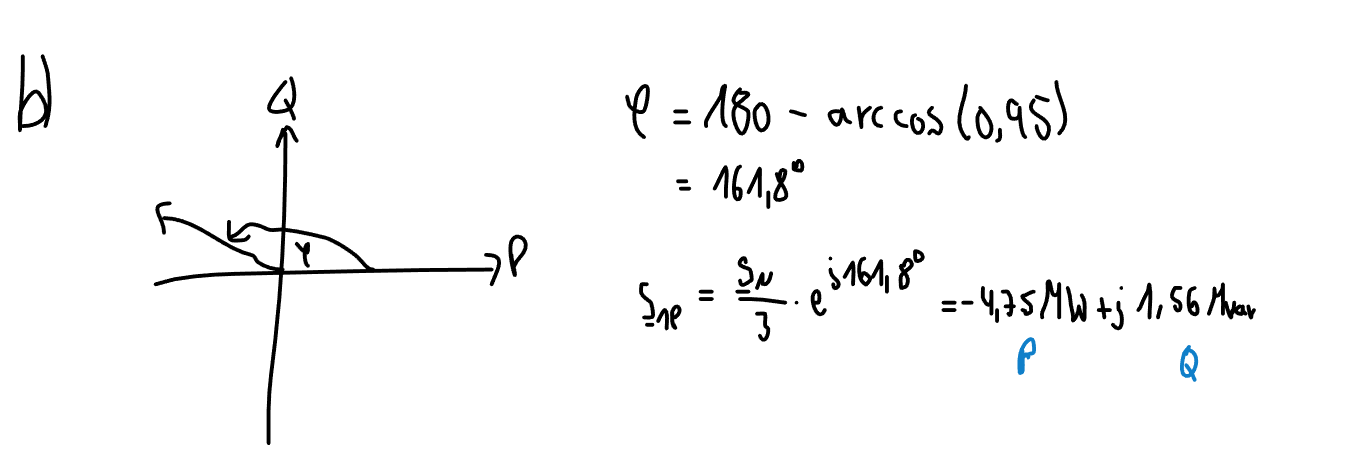 b)
Q
φ
P
φ = 180 - arccos(0,95)
= 161,8°
S_1P = S_N/3 · e^{j161,8°} = -4,75 MW + j 1,56 Mvar
P Q